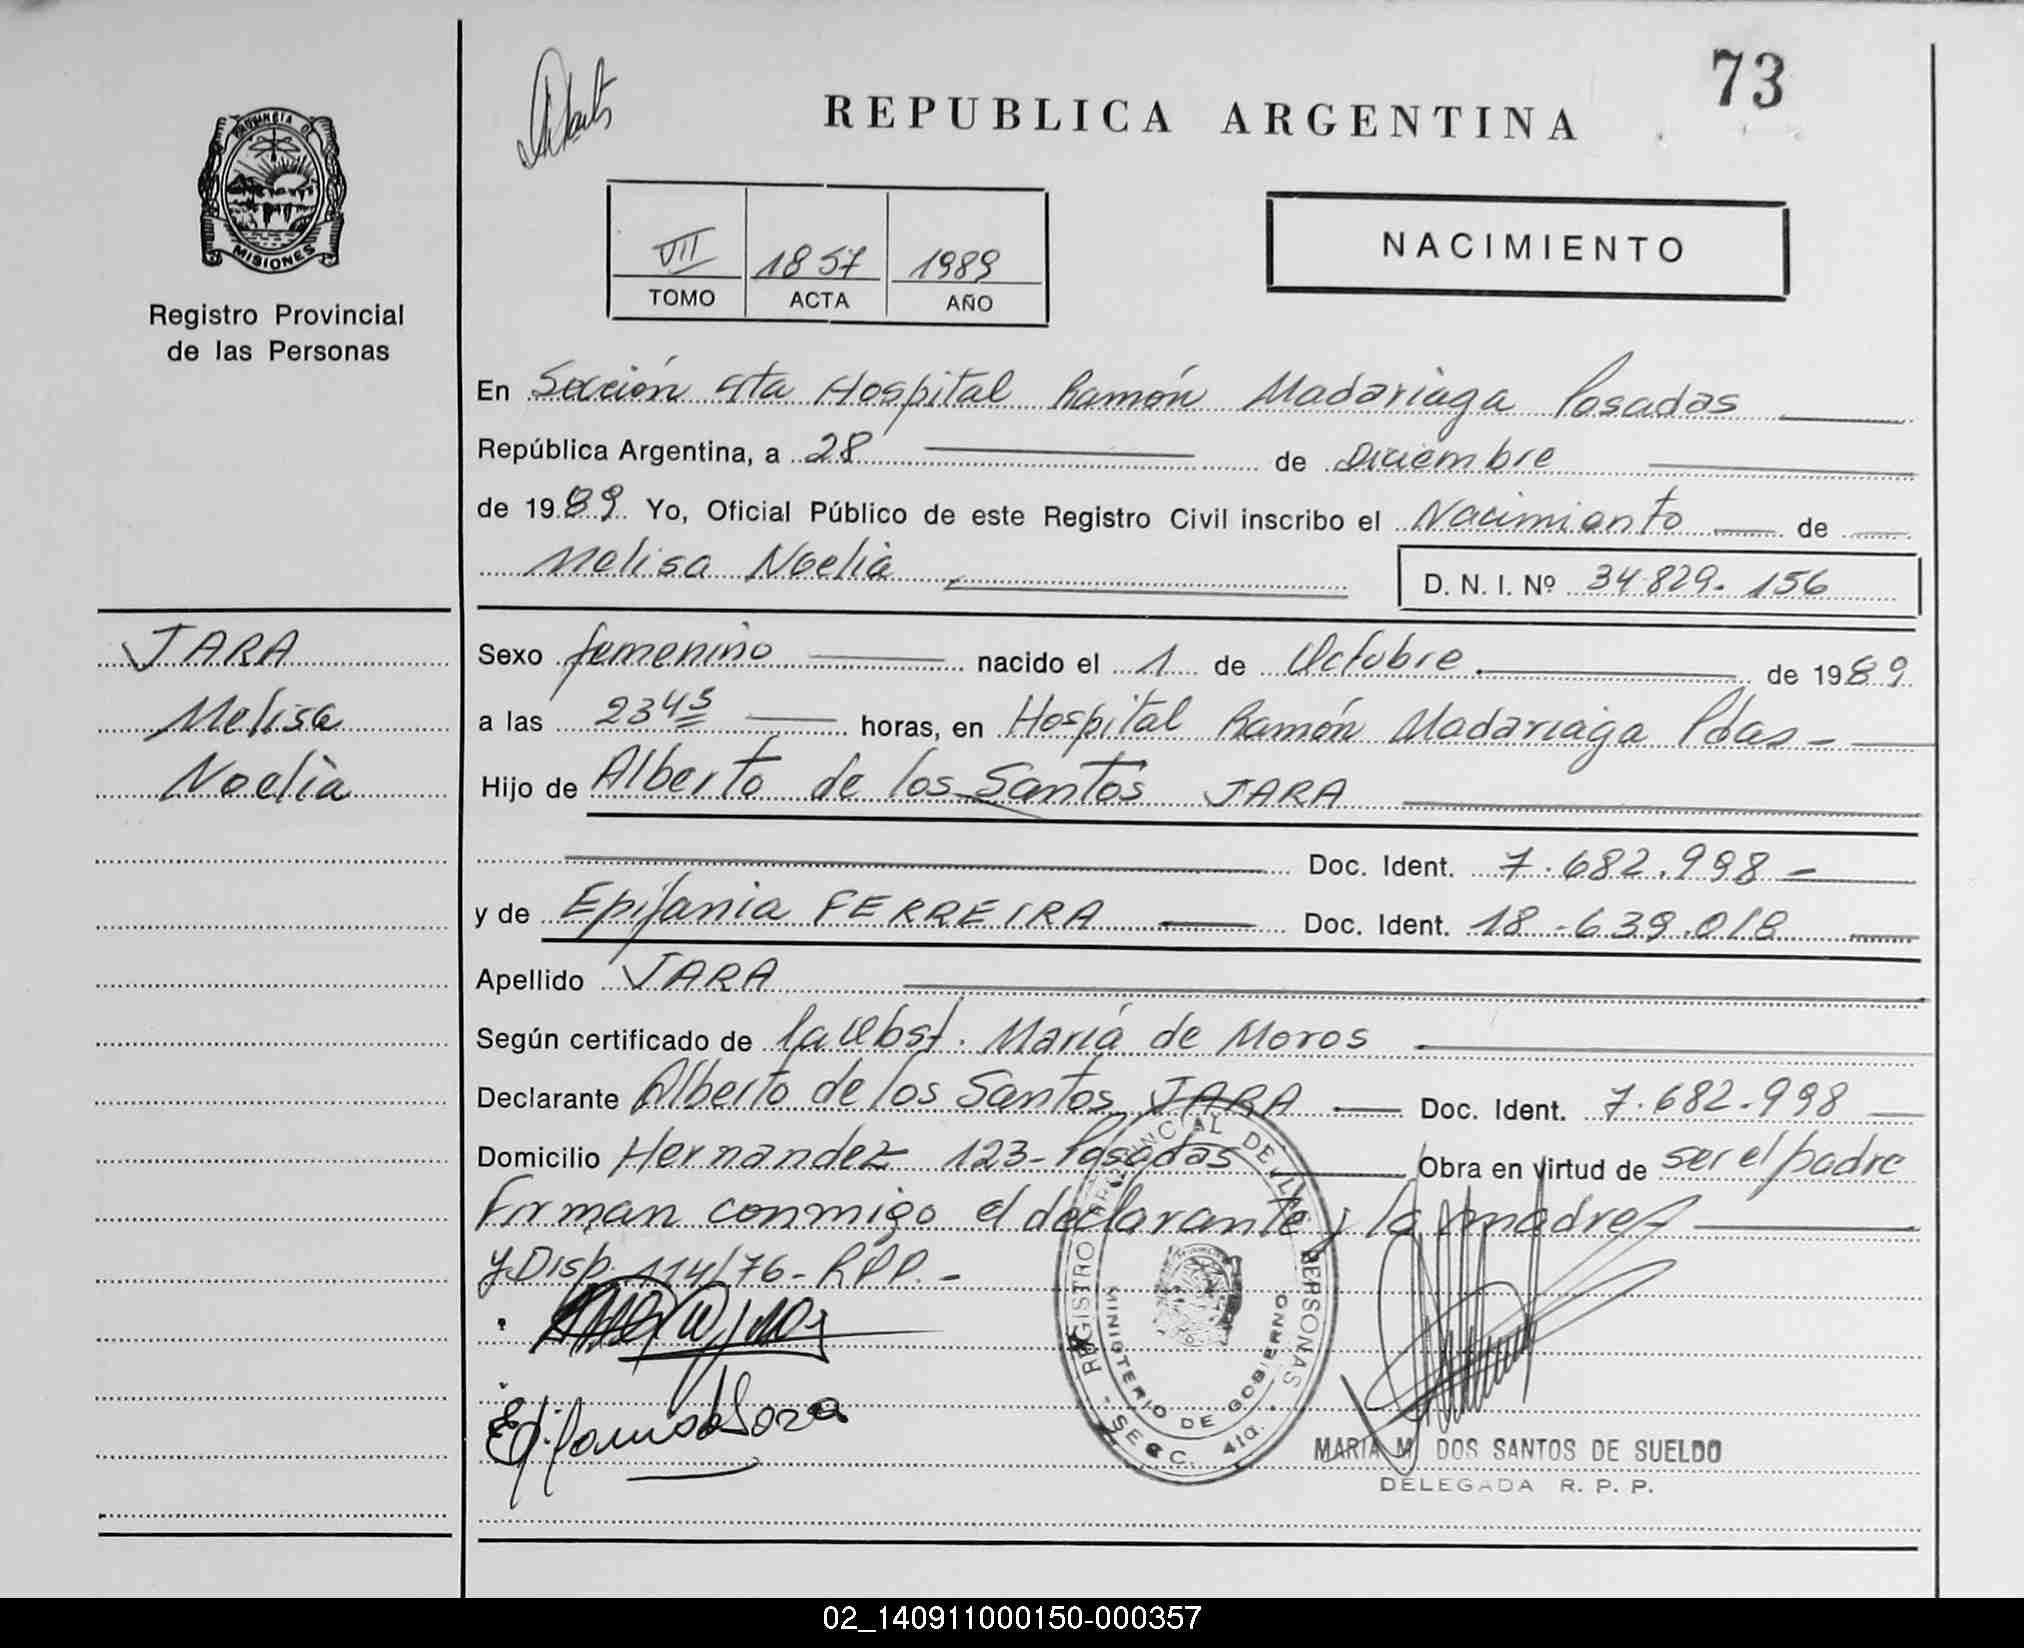 73
REPUBLICA ARGENTINA
PROVINCIA DE
MISIONES
Registro Provincial
de las Personas
VII 1857 1989
TOMO ACTA AÑO
NACIMIENTO
En Sección 4ta Hospital Ramón Madariaga Posadas
República Argentina, a 28 de Diciembre
de 1989 Yo, Oficial Público de este Registro Civil inscribo el Nacimiento de
Melisa Noelia D. N. I. Nº 34.829.156
JARA
Melisa
Noelia
Sexo femenino nacido el 1 de Octubre de 1989
a las 2345 horas, en Hospital Ramón Madariaga Pdas-
Hijo de Alberto de los Santos JARA
Doc. Ident. 7.682.998-
y de Epifania FERREIRA Doc. Ident. 18.639.018
Apellido JARA
Según certificado de la Obst. María de Moros
Declarante Alberto de los Santos JARA Doc. Ident. 7.682.998
Domicilio Hernandez 123-Posadas Obra en virtud de ser el padre
Firman conmigo el declarante y la madre
y Disp. 114/76- RPP.-
REGISTRO PROVINCIAL DE LAS PERSONAS
MINISTERIO DE GOBIERNO
SECC. 4ta.
MARIA M. DOS SANTOS DE SUELDO
DELEGADA R. P. P.
02_140911000150-000357